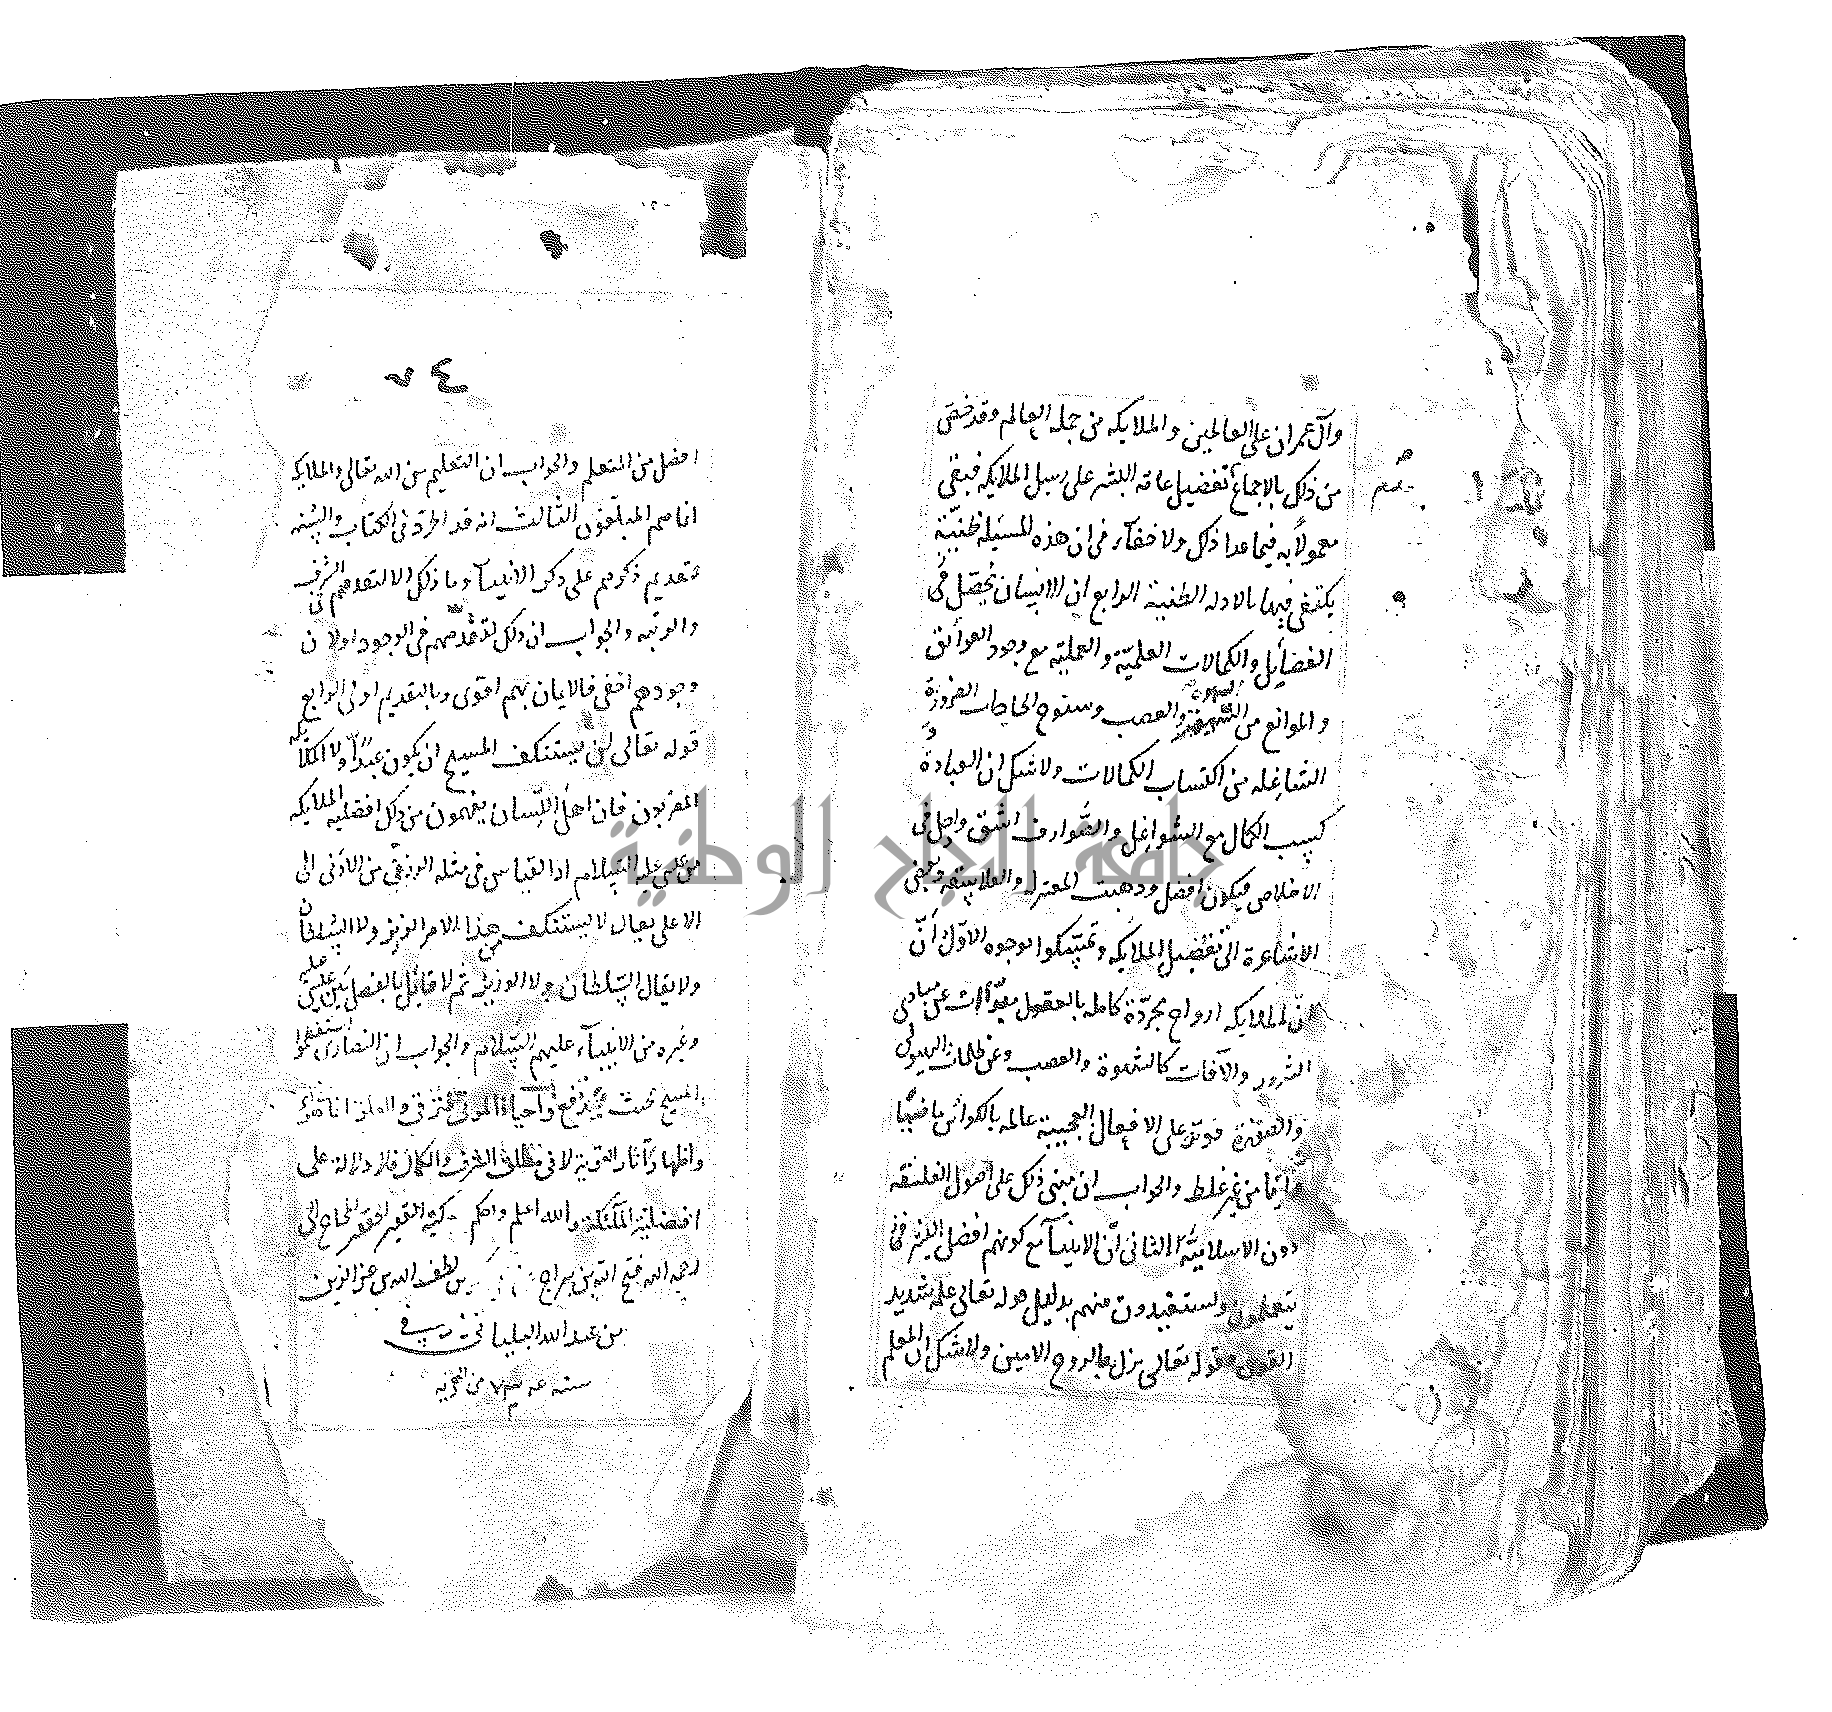 وآل عمران على العالمين والملايكه من جمله العالم وقد خص
من ذلك بالاجماع تفضيل عامه البشر على رسل الملايكه فبقى
معمولاً به فيما عدا ذلك ولا خفاء فى ان هذه المسئله ظنية
يكتفى فيها بالادله الظنية الرابع ان الانسان يحصل
الفضايل والكمالات العلميّة والعمليه مع وجود العوائق
والموانع من الشهوة والغضب وسنوح الحاجات الضرورية
الشاغله من اكتساب الكمالات ولا شك ان العبادة و
كسب الكمال مع الشواغل والصّوارف اشق وادخل فى
الاخلاص فيكون افضل وذهبت المعتزله والفلاسفه وبعض
الاشاعرة الى تفضيل الملايكه وتمسّكوا بوجوه الاوّل أنّ
الملايكه ارواح مجرّدة كامله بالعقول مبرّأة عن مبادى
الشرور والآفات كالشهوة والغضب وعن ظلمات الهيولى
والصورة قوية على الافعال العجيبة عالمه بالكوائن ماضيها
وآتيها من غير غلط والجواب ان مبنى ذلك على اصول الفلسفه
دون الاسلاميّة الثانى أنّ الانبيآء مع كونهم افضل البشر
يتعلمون ويستفيدون منهم بدليل قوله تعالى علمه شديد
القوى وقوله تعالى نزل به الروح الامين ولا شك ان المعلم
جامعة النجاح الوطنية
٧٤
افضل من المتعلم والجواب ان التعليم من الله تعالى والملايكه
انما هم المبلغون الثالث انه قد اطرد فى الكتاب والسّنه
تقديم ذكرهم على ذكر الانبيآء وما ذلك الا لتقدمهم فى الشرف
والرتبه والجواب ان ذلك لتقدّمهم فى الوجود او لان
وجودهم اخفى فالايمان بهم اقوى وبالتقديم اولى الرابع
قوله تعالى لن يستنكف المسيح ان يكون عبداً ولا الملائكه
المقربون فان اهل اللسان يفهمون من ذلك افضليه الملايكه
من عيسى عليه السّلام اذ القياس فى مثله الترقى من الادنى الى
الاعلى يقال لا يستنكف من هذا الامر الوزير ولا السّلطان
ولا يقال السّلطان ولا الوزير ثم لا قايل بالفصل بين عيسى عليه
وغيره من الانبيآء عليهم السّلام والجواب ان النصارى استعظموا
المسيح بحيث
واظهار آثار القوية لا فى مطلق الشرف والكمال فلا دلالة على
افضلية الملائكة والله اعلم واحكم كتبه الفقير الحقير المحتاج الى
رحمه الله فتح الله بن سراج بن لطف الله بن عز الدين
من عبد الله البليانى
سنه من الهجريه